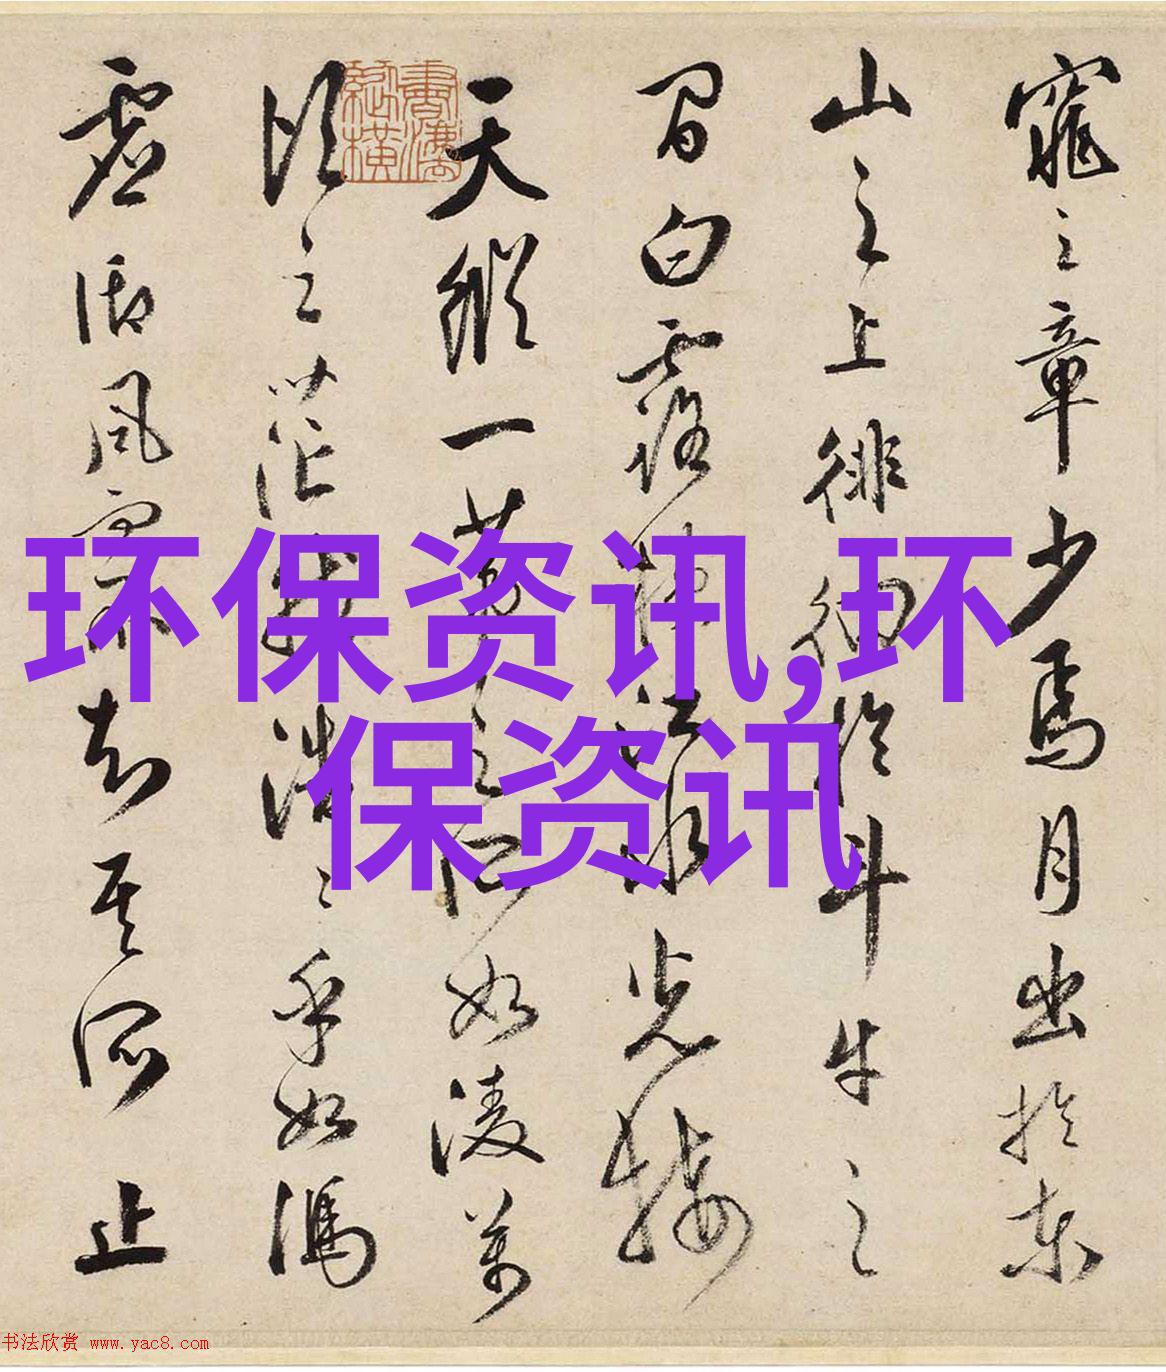 窕之章少焉月出於東
山之上徘徊於斗牛之
間白露橫江水光接
天縱一葦之所如凌萬
頃之茫然浩〻乎如馮
虛御風而不知其所止
环保资讯,环
保资讯
书法欣赏 www.yac8.com